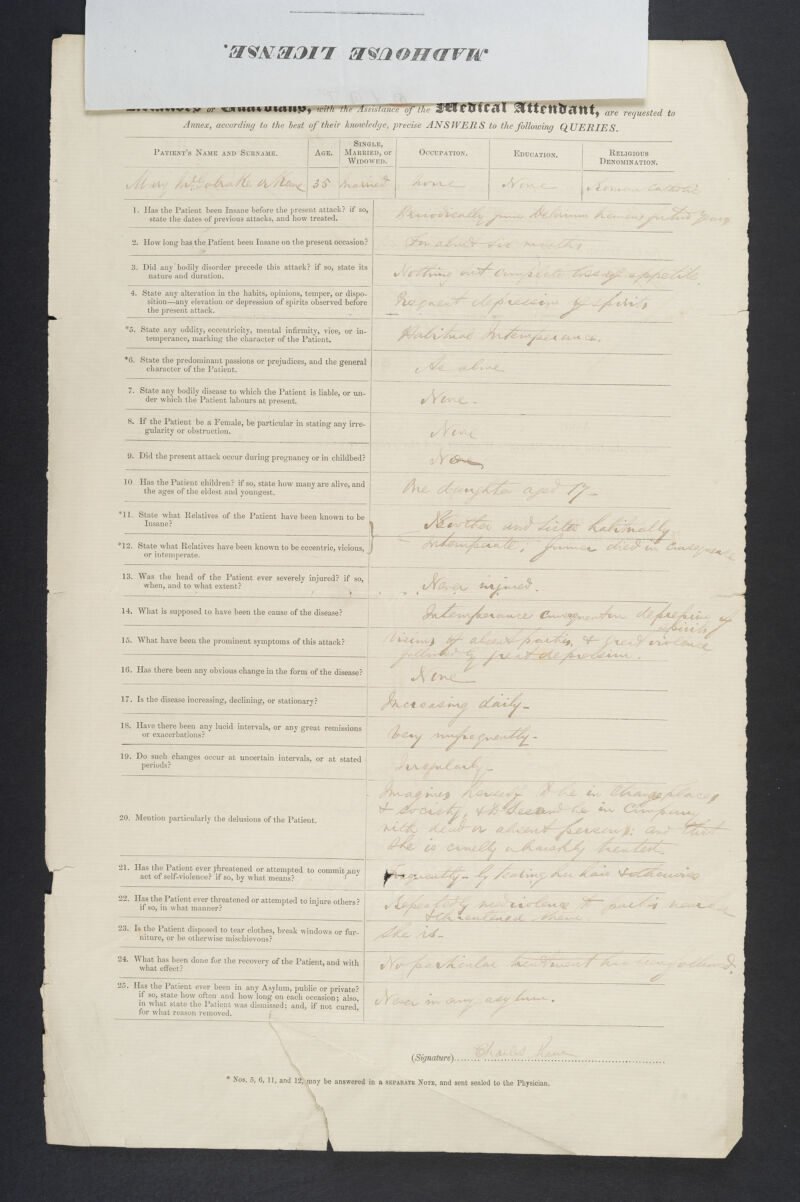 MADHOUSE LICENSE.
Relations or Guardians, with the Assistance of the Medical Attendant, are requested to
Annex, according to the best of their knowledge, precise ANSWERS to the following QUERIES.
PATIENT'S NAME AND SURNAME. AGE. SINGLE, MARRIED, OR WIDOWED. OCCUPATION. EDUCATION. RELIGIOUS DENOMINATION.
Mary or Kane 35 married none None Roman Catholic
1. Has the Patient been Insane before the present attack? if so,
state the dates of previous attacks, and how treated.
Periodically from Delirium tremens for two years
2. How long has the Patient been Insane on the present occasion?
For about six months
3. Did any bodily disorder precede this attack? if so, state its
nature and duration.
Nothing but complete loss of appetite.
4. State any alteration in the habits, opinions, temper, or dispo-
sition—any elevation or depression of spirits observed before
the present attack.
Frequent depression of spirits
*5. State any oddity, eccentricity, mental infirmity, vice, or in-
temperance, marking the character of the Patient.
Habitual Intemperance.
*6. State the predominant passions or prejudices, and the general
character of the Patient.
As above
7. State any bodily disease to which the Patient is liable, or un-
der which the Patient labours at present.
None-
8. If the Patient be a Female, be particular in stating any irre-
gularity or obstruction.
None
9. Did the present attack occur during pregnancy or in childbed?
None
10 Has the Patient children? if so, state how many are alive, and
the ages of the eldest and youngest.
One daughter aged 17-
*11. State what Relatives of the Patient have been known to be
Insane?
and sister habitually
*12. State what Relatives have been known to be eccentric, vicious,
or intemperate.
intemperate, former died in consequence
13. Was the head of the Patient ever severely injured? if so,
when, and to what extent?
Never injured.
14. What is supposed to have been the cause of the disease?
Intemperance consequent on depression of
spirits
15. What have been the prominent symptoms of this attack?
Visions of absent parties, & great violence
followed by great depression.
16. Has there been any obvious change in the form of the disease?
None
17. Is the disease increasing, declining, or stationary?
Increasing daily-
18. Have there been any lucid intervals, or any great remissions
or exacerbations?
Very unfrequently-
19. Do such changes occur at uncertain intervals, or at stated
periods?
Irregularly-
20. Mention particularly the delusions of the Patient.
Imagines herself to be in strange places
& society, & to be in company
with dead or absent persons: and that
she is cruelly & harshly treated
21. Has the Patient ever threatened or attempted to commit any
act of self-violence? if so, by what means?
Frequently- by tearing her hair & otherwise
22. Has the Patient ever threatened or attempted to injure others?
if so, in what manner?
Repeatedly used violence to parties near her
& threatened
23. Is the Patient disposed to tear clothes, break windows or fur-
niture, or be otherwise mischievous?
She is-
24. What has been done for the recovery of the Patient, and with
what effect?
No particular treatment has been followed.
25. Has the Patient ever been in any Asylum, public or private?
if so, state how often and how long on each occasion; also,
in what state the Patient was dismissed; and, if not cured,
for what reason removed.
Never in any asylum.
(Signature) Charles Kane
* Nos. 5, 6, 11, and 12, may be answered in a SEPARATE NOTE, and sent sealed to the Physician.